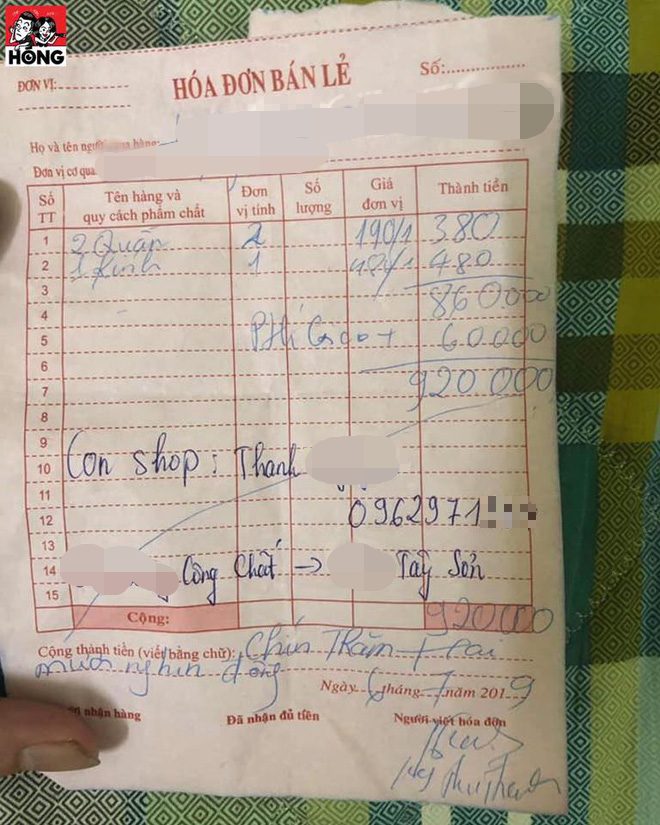 HÓNG
ĐƠN VỊ:
HÓA ĐƠN BÁN LẺ
Số:
Họ và tên người mua hàng:
Đơn vị cơ qua
Số TT Tên hàng và quy cách phẩm chất Đơn vị tính Số lượng Giá đơn vị Thành tiền
1 2 Quần 2 190/1 380
2 1 kính 1 480/1 480
3 860000
4
5 Phí 60.000
6
7 920 000
8
9
10 Con shop: Thanh
11
12 0962971
13
14 Công Chất → Tây Sơn
15
Cộng: 920000
Cộng thành tiền (viết bằng chữ): Chín Trăm Hai
mươi nghìn đồng
Ngày 6 tháng 7 năm 2019
nhận hàng Đã nhận đủ tiền Người viết hóa đơn